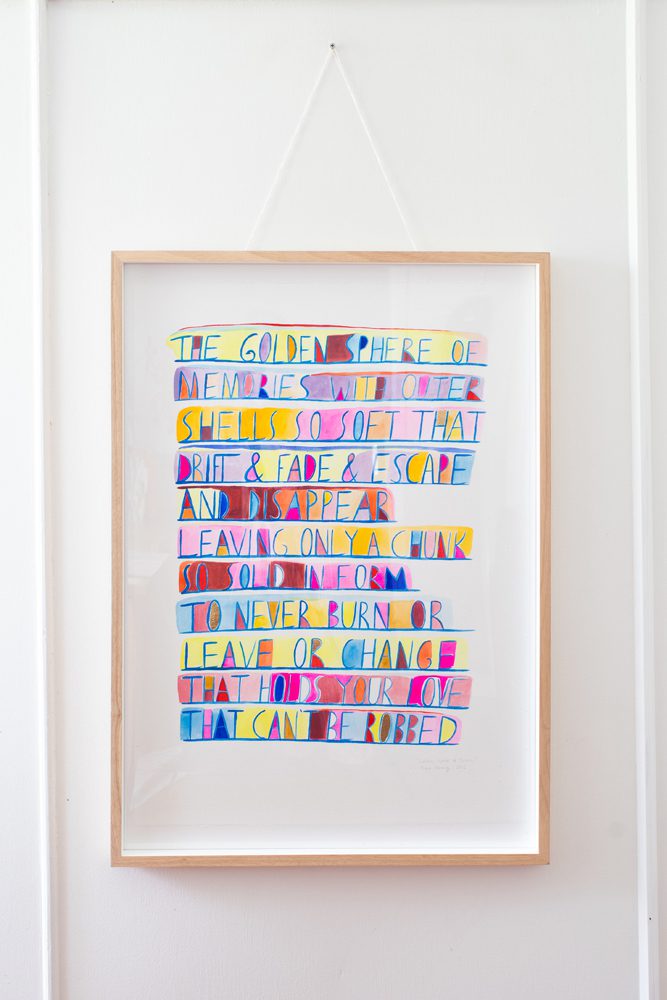 THE GOLDEN SPHERE OF
MEMORIES WITH OUTER
SHELLS SO SOFT THAT
DRIFT & FADE & ESCAPE
AND DISAPPEAR
LEAVING ONLY A CHUNK
SO SOLID IN FORM
TO NEVER BURN OR
LEAVE OR CHANGE
THAT HOLDS YOUR LOVE
THAT CAN'T BE ROBBED